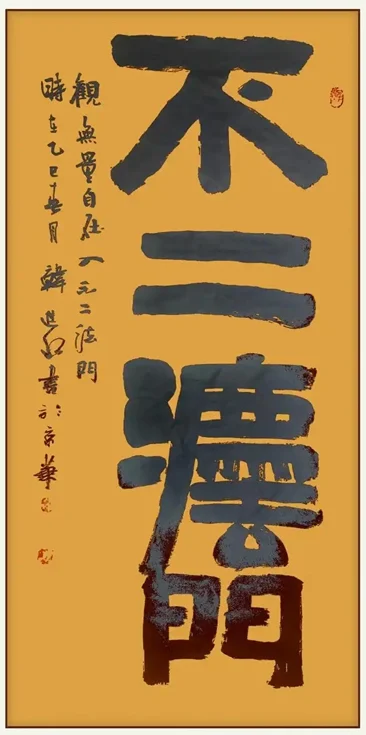 不二灋門
觀無量自在入不二法門
時在乙巳春月韓書於京華